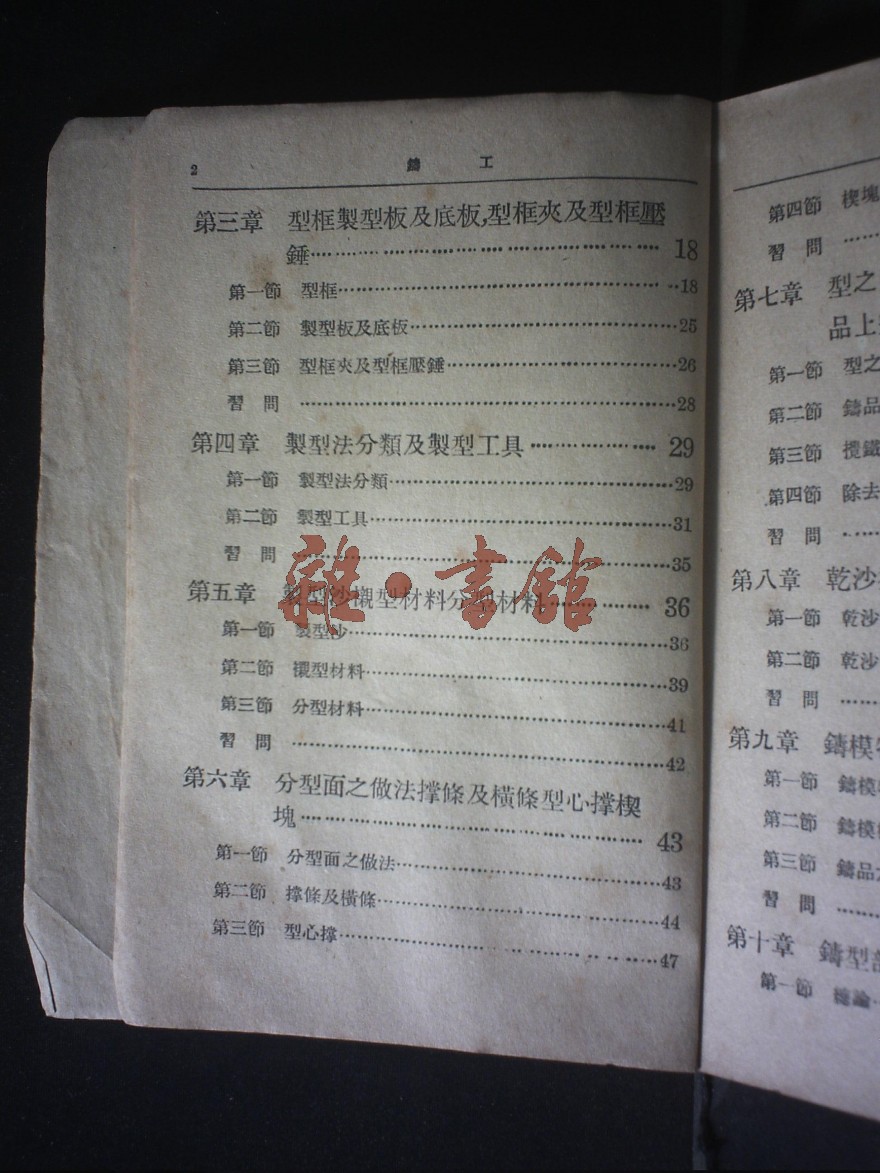 2
鑄 工
第三章 型框製型板及底板,型框夾及型框壓
錘 18
第一節 型框 18
第二節 製型板及底板 25
第三節 型框夾及型框壓錘 26
習 問 28
第四章 製型法分類及製型工具 29
第一節 製型法分類 29
第二節 製型工具 31
習 問 35
第五章 製型沙襯型材料分型材料 36
第一節 製型沙 36
第二節 襯型材料 39
第三節 分型材料 41
習 問 42
第六章 分型面之做法撑條及橫條型心撑楔
塊 43
第一節 分型面之做法 43
第二節 撑條及橫條 44
第三節 型心撑 47
雜·書館
第四節 楔塊
習 問
第七章 型之
品上
第一節 型之
第二節 鑄品
第三節 攪鐵
第四節 除去
習 問
第八章 乾沙
第一節 乾沙
第二節 乾沙
習 問
第九章 鑄模
第一節 鑄模
第二節 鑄模
第三節 鑄品
習 問
第十章 鑄型
第一節 總論